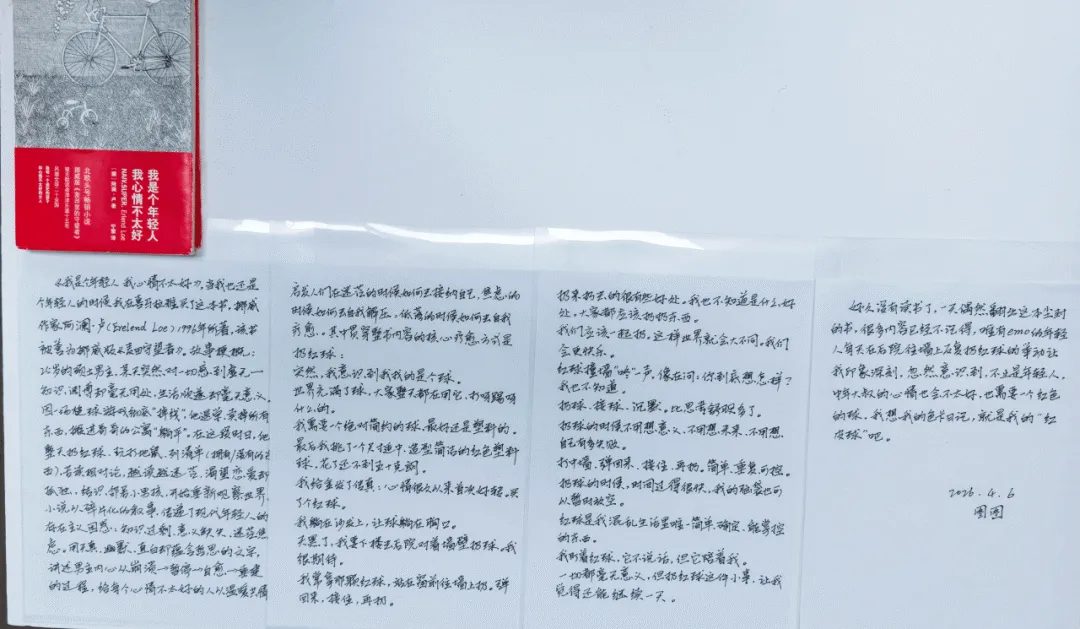 我是个年轻人
我心情不太好
NAIV.SUPER. Erlend Loe
[挪] 阿澜·卢 著
宁蒙 译
北欧头号畅销小说
挪威版《麦田里的守望者》
《我是个年轻人 我心情不太好》。当我也还是
个年轻人的时候我在离开拉雅买了这本书。挪威
作家阿澜·卢(Erelend Loe)1996年所著,该书
被誉为挪威版《麦田守望者》。故事梗概:
25岁的硕士男主,某天突然对一切感到毫无一
知识渊博却毫无用处,生活快递却毫无意义。
因一场棒球游戏彻底“掉线”。他退学、卖掉所有
东西,搬进哥哥的公寓“躺平”。在这段时日,他
整天扔红球、玩打地鼠、列清单(拥有/没有的东
西)、名家相对论,越读越迷茫、渴望恋爱却
孤独、结识邻居小男孩,开始重新观察世界。
小说以碎片化的叙事,传递了现代年轻人的
存在主义困惑:知识过剩、意义缺失、迷茫焦
虑。用天真、幽默、直白却蕴含哲思的文字,
讲述男主内心从崩溃→暂停→自愈→重建
的过程,给每个心情不太好的人以温暖共情
启发人们在迷茫的时候如何去接纳自己,焦虑的
时候如何去自我解压,低落的时候如何去自我
疗愈。其中贯穿整书内容的核心疗愈方式是
扔红球:
突然,我意识到我找的是个球。
世界充满了球,大家整天都在用它,打呀踢呀
什么的。
我需要一个绝对简约的球,最好还是塑料的。
最后我挑了一个尺寸适中、造型简洁的红色塑料
球,花了还不到五十克朗。
我给金发了传真:心情很久以来首次好转。买
了个红球。
我躺在沙发上,让球躺在胸口。
天黑了,我要下楼去后院对着墙壁扔球。我
很期待。
我拿拿那颗红球,站在窗前往墙上扔。弹
回来,接住,再扔。
扔来扔去的很有些好处。我也不知道是什么好
处。大家都应该扔扔东西。
我们应该一起扔。这样世界就会大不同。我们
会更快乐。
红球撞墙“咚”一声,像在问:你到底想怎样?
我也不知道。
扔球、接球、沉默。比思考舒服多了。
扔球的时候不用想意义、不用想未来、不用想
自己有多失败。
打中墙、弹回来、接住、再扔。简单、重复、可控。
扔球的时候,时间过得很快。我的脑袋也可
以暂时放空。
红球是我混乱生活里唯一简单、确定、能掌控
的东西。
我盯着红球,它不说话,但它陪着我。
一切都毫无意义,但扔红球这件小事,让我
觉得还能继续一天。
好久没有读书了,一天偶然翻出这本尘封
的书,很多内容已经不记得,唯有emo的年轻
人每天在后院往墙上反复扔红球的举动让
我印象深刻,忽然意识到,不止是年轻人,
中年大叔的心情也会不太好,也需要一个红色
的球。我想我的色卡日记,就是我的“红
皮球”吧。
2026.4.6
囝囝